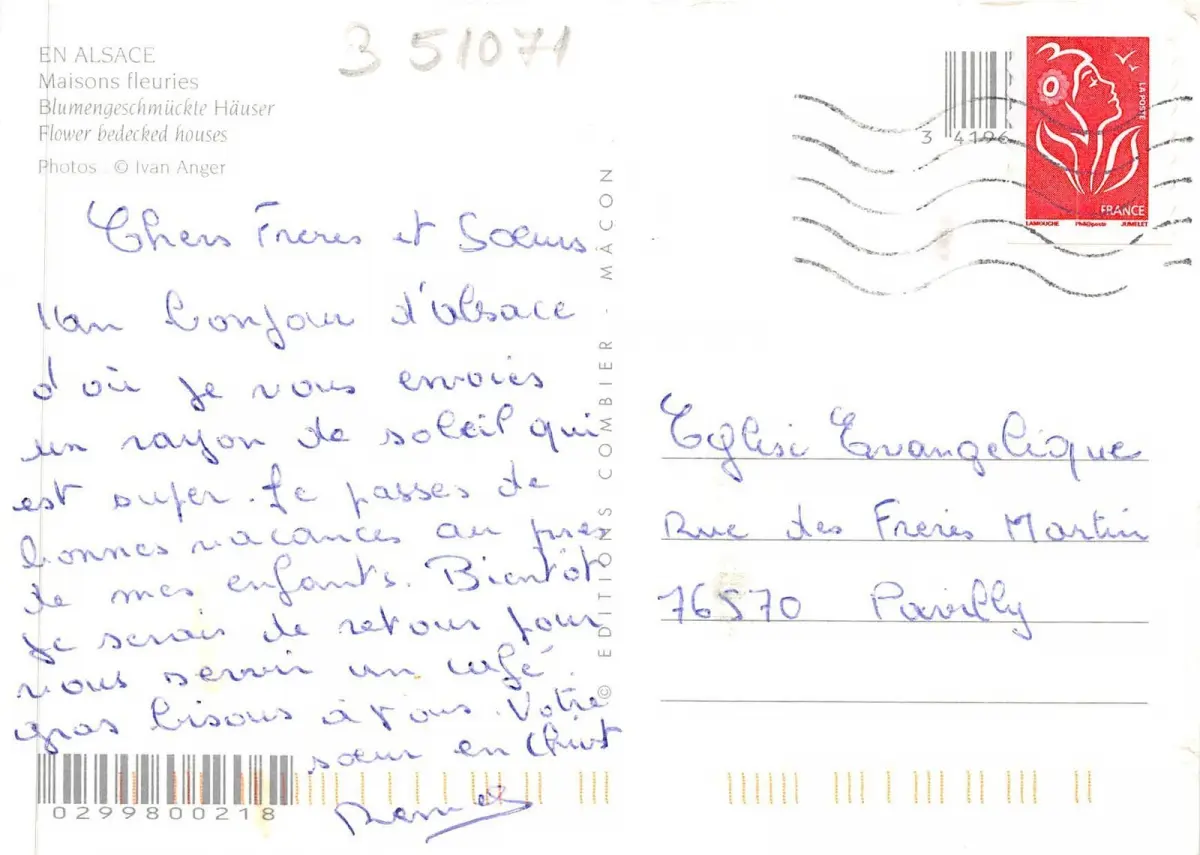 EN ALSACE
Maisons fleuries
Blumengeschmückte Häuser
Flower bedecked houses
Photos : © Ivan Anger
3 51071
Chers Freres et Sœurs
un bonjour d'alsace
d'où je vous envoies
un rayon de soleil qui
est super. Je passes de
bonnes vacances au pres
de mes enfants. Bientôt
je serais de retour pour
vous servir un café.
gros bisous à vous. Votre
sœur en Christ
© EDITIONS COMBIER MÂCON
0299800218
3 4196
LA POSTE
FRANCE
LAMOUCHE Phil@poste JUMELET
Eglise Evangelique
Rue des Freres Martin
76570 Pavilly